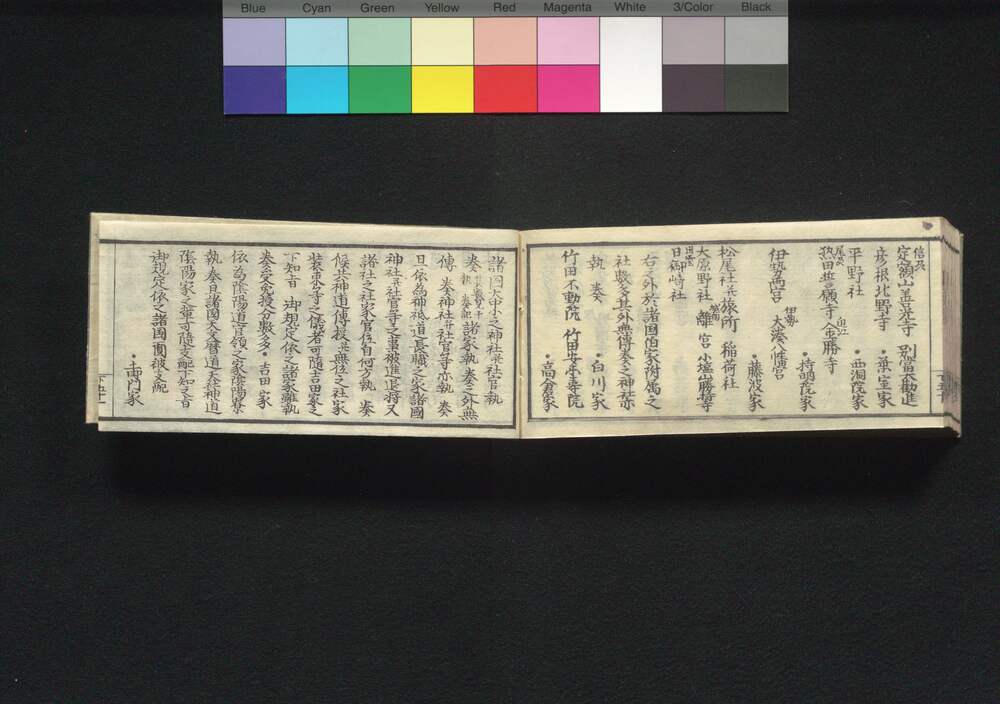 Blue Cyan Green Yellow Red Magenta White 3/Color Black
信濃
定額山善光寺 別當大勧進
彦根北野寺 ・葉室家
平野社 ・西洞院家
尾張
熱田誓願寺 近江 金勝寺
・持明院家
伊勢両宮 伊勢 大湊八幡宮
・藤波家
松尾社并旅所 稲荷社
大原野社 離宮 小塩山勝持寺
出雲
日御崎社
右之外於諸国伯家附属之
社數多其外無傳奏之神社
執奏 ・白川家
竹田不動院 竹田安楽寿院
・高倉家
諸国大中小之神社并社官執
奏 諸家執奏之外無
傳奏神社并社官等亦執奏
且依為神祇道長職之家諸国
神社并社官等之事被進退将又
諸社之社家官位自何方執奏
候共神道傳授并無位之社家
装束等之儀者可随吉田家之
下知之旨 御規定依之諸家雖執
奏受免授分數多・吉田家
依為陰陽道官領之家陰陽寮
執奏且諸国天曆道天社神道
陰陽家之輩可随支配下知之旨
御規定依之諸国面被支配
・土御門家